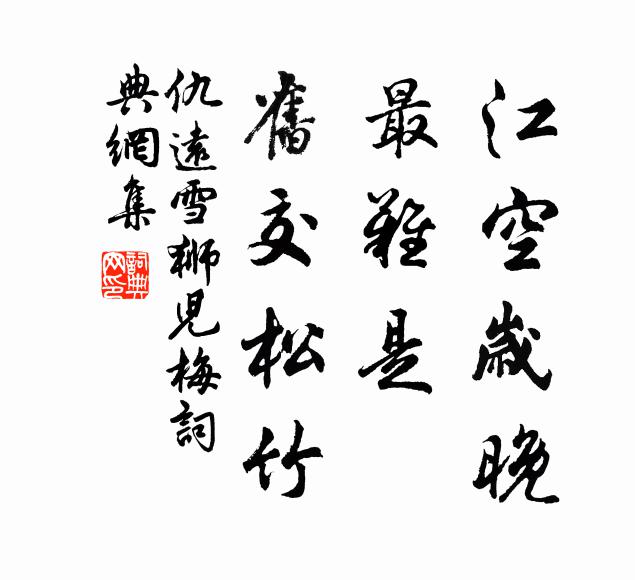 江空歲晚
最難是
舊交松竹
仇遠雪獅兒梅詞
典網集
詞典網印